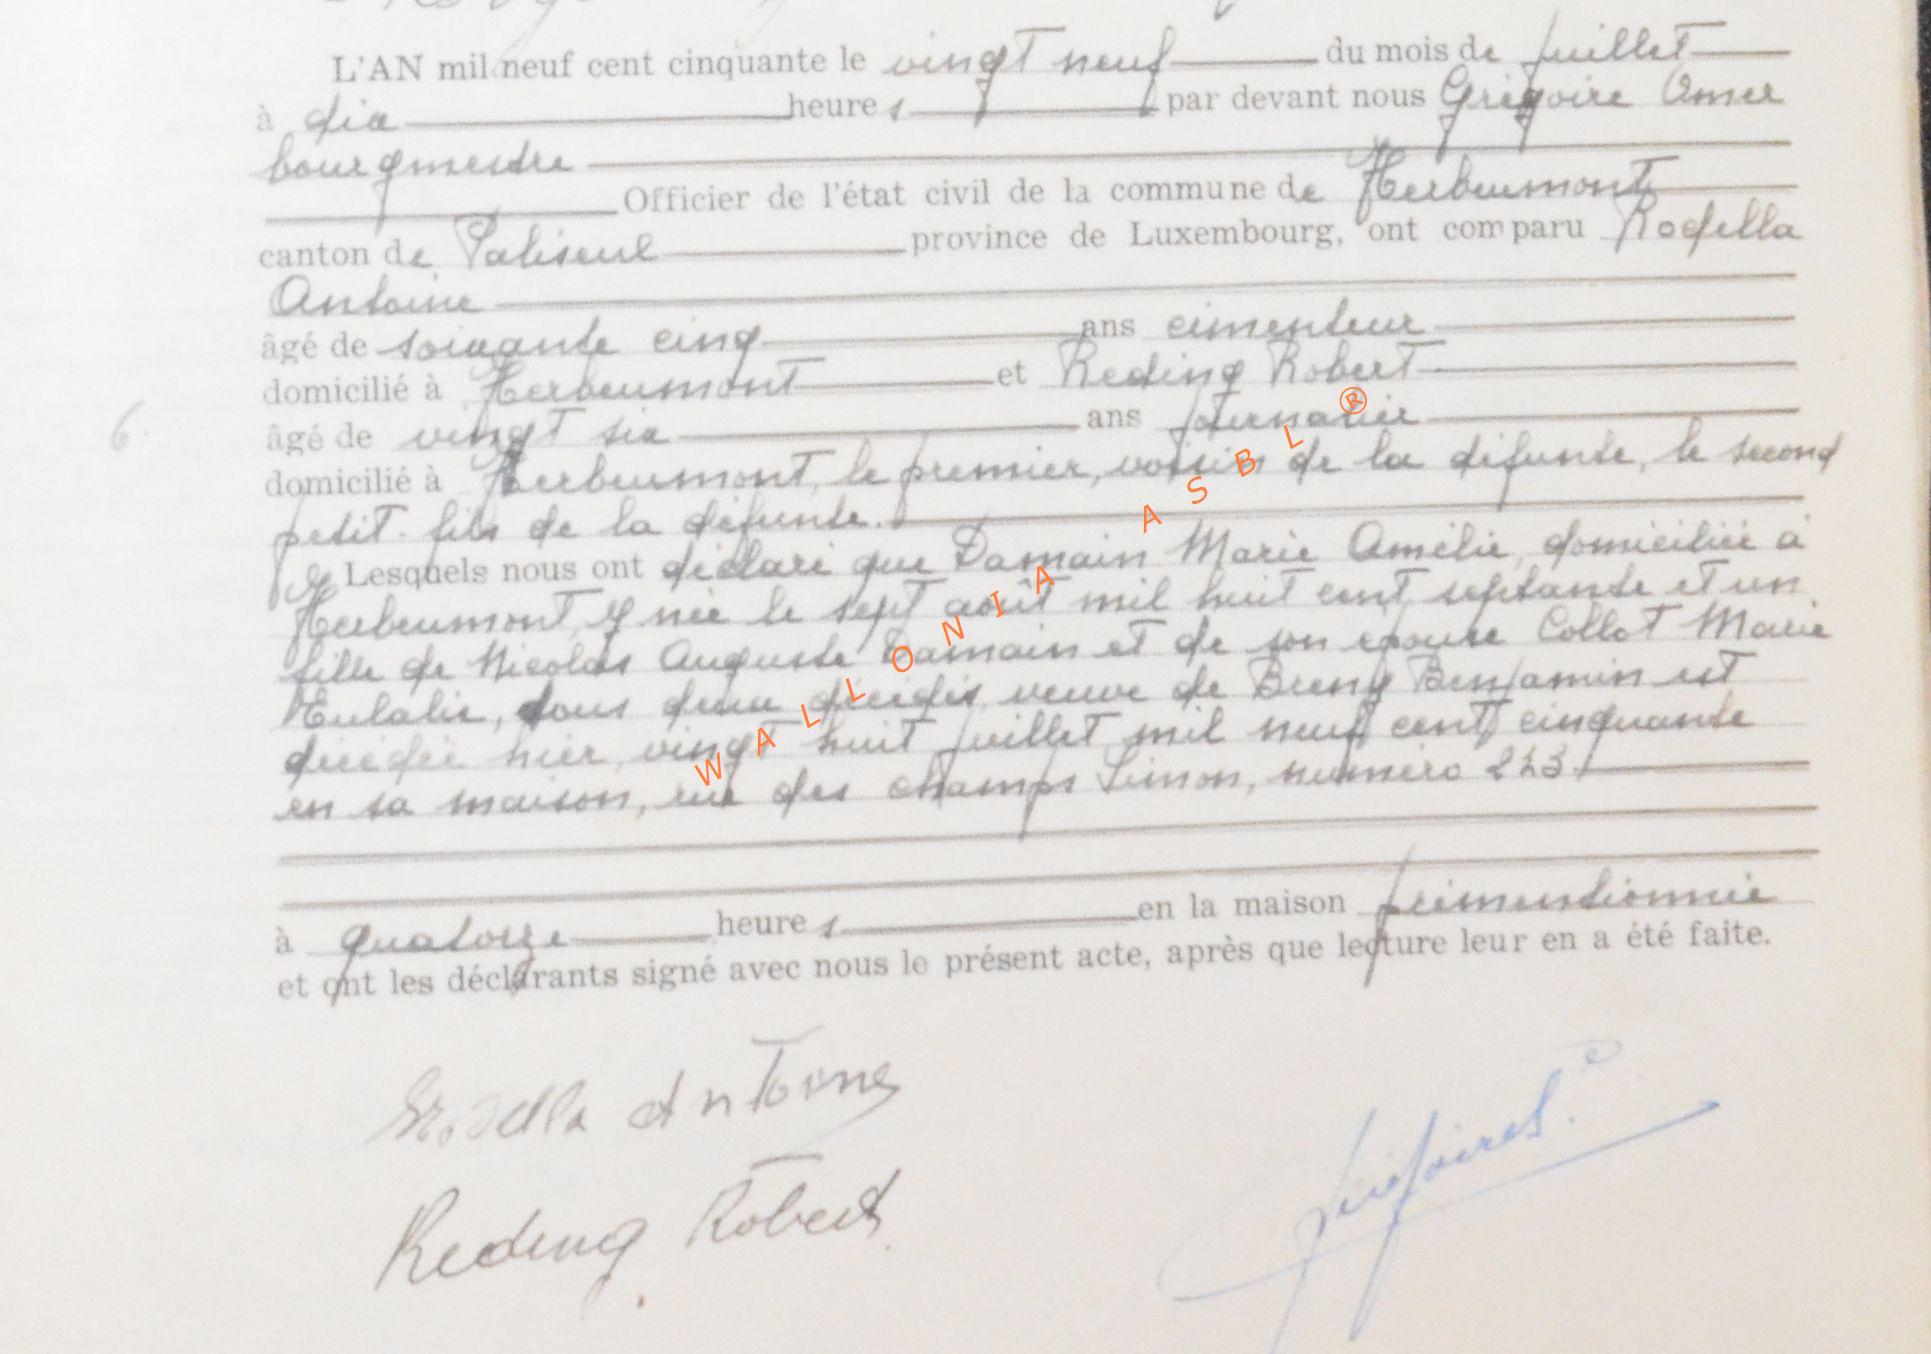 L'AN mil neuf cent cinquante le vingt neuf du mois de juillet
à dix heures par devant nous Grégoire Omer
bourgmestre
Officier de l'état civil de la commune de Herbeumont
canton de Paliseul province de Luxembourg, ont comparu Rodella
Antoine
âgé de soixante cinq ans cimenteur
domicilié à Herbeumont et Reding Robert
6.
âgé de vingt six ans journalier
domicilié à Herbeumont, le premier, voisin de la défunte, le second
petit-fils de la défunte.
Lesquels nous ont déclaré que Damain Marie Amélie, domiciliée à
Herbeumont, y née le sept août mil huit cent septante et un
fille de Nicolas Auguste Damain et de son épouse Collot Marie
Eulalie, tous deux décédés, veuve de Benjamin est
décédée hier, vingt huit juillet mil neuf cent cinquante
en sa maison, rue des champs Simon, numéro 223.
à quatorze heures en la maison prémentionnée
et ont les déclarants signé avec nous le présent acte, après que lecture leur en a été faite.
Rodella Antoine
Reding Robert
WALLONIA ASBL ®